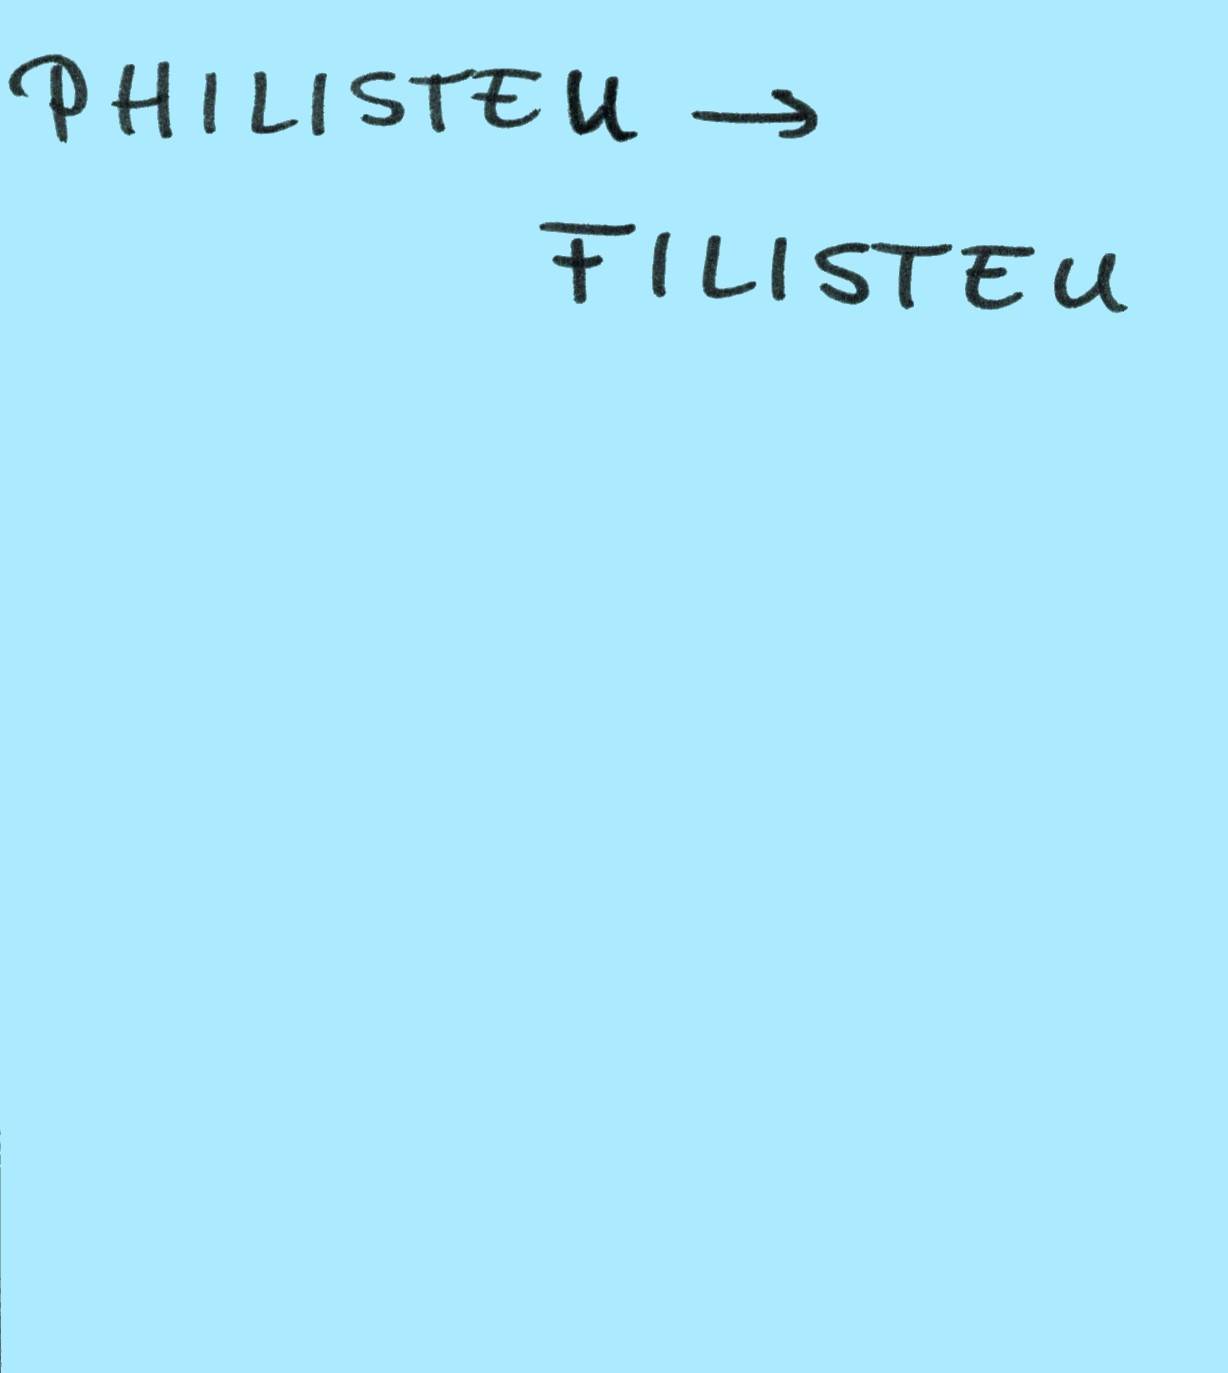 PHILISTEU →
FILISTEU